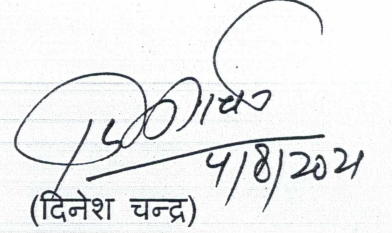 4/8/2021
(दिनेश चन्द्र)